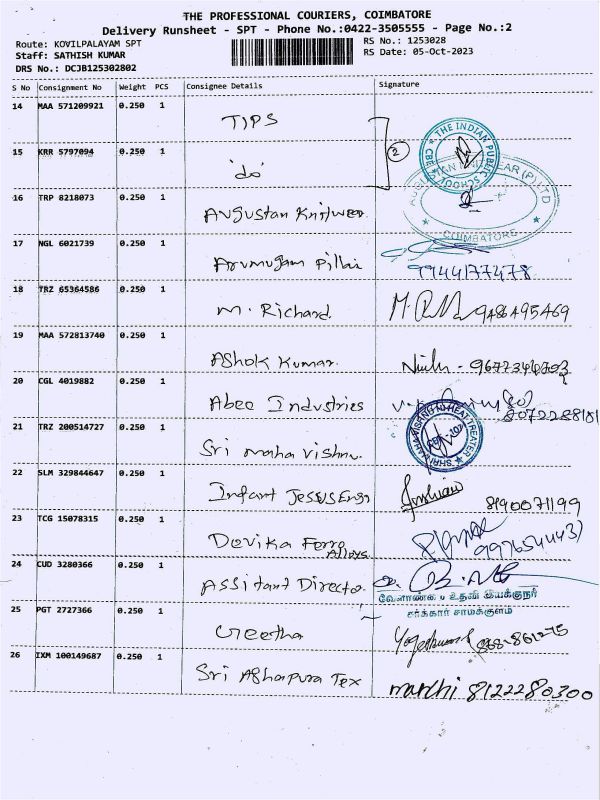 THE PROFESSIONAL COURIERS, COIMBATORE
Delivery Runsheet - SPT - Phone No.:0422-3505555 - Page No.:2
Route: KOVILPALAYAM SPT
RS No.: 1253028
Staff: SATHISH KUMAR
RS Date: 05-Oct-2023
DRS No.: DCJB125302802
S No Consignment No Weight PCS Consignee Details Signature
14 MAA 571209921 0.250 1 TIPS
THE INDIAN PUBLIC SCHOOL CBE
15 KRR 5797094 0.250 1 "do" 2
16 TRP 8218073 0.250 1 Augustan Knitwear
COIMBATORE
17 NGL 6021739 0.250 1 Arumugam Pillai 9944177478
18 TRZ 65364586 0.250 1 M. Richard
19 MAA 572813740 0.250 1 Ashok Kumar
20 CGL 4019882 0.250 1 Abee Industries
21 TRZ 200514727 0.250 1 Sri maha vishnu
22 SLM 329844647 0.250 1 Infant Jesus Engg 8190071199
23 TCG 15078315 0.250 1 Devika Ferro Alloys
24 CUD 3280366 0.250 1 Assitant Director
வேளாண்மை உதவி இயக்குநர்
சர்க்கார் சாமக்குளம்
25 PGT 2727366 0.250 1 Geetha
26 IXM 100149687 0.250 1 Sri Ashapura Tex 8122280300